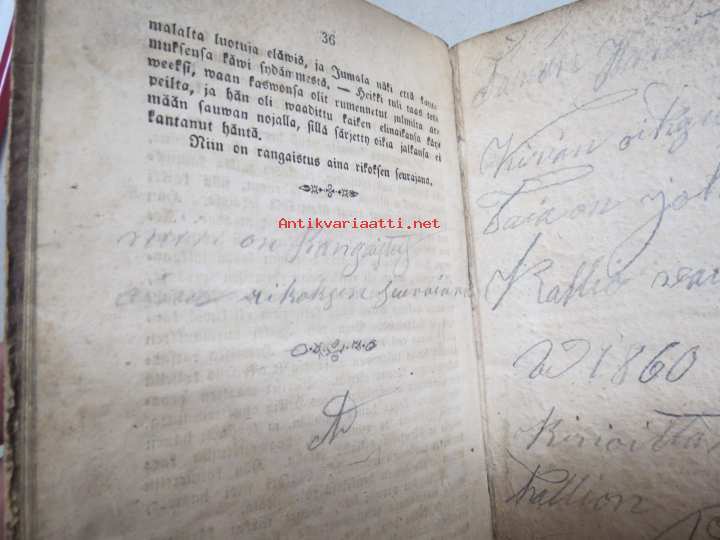 36
malalta luotuja eläwiä, ja Jumala näki että katu-
muksensa käwi sydämmestä. — Heikki tuli taas ter-
weeksi, waan kaswonsa olit rumennetut julmilta ar-
peilta, ja hän oli waadittu kaiken elinaikansa käy-
mään sauwan nojalla, sillä särjetty oikia jalkansa ei
kantanut häntä.
Niin on rangaistus aina rikoksen seurajana.
Antikvariaatti.net
niin on Rangaistus
aina rikoksen seuraiana
Kirian oikea
Taia on
Kallio
1860
Kirioitta
Kallion